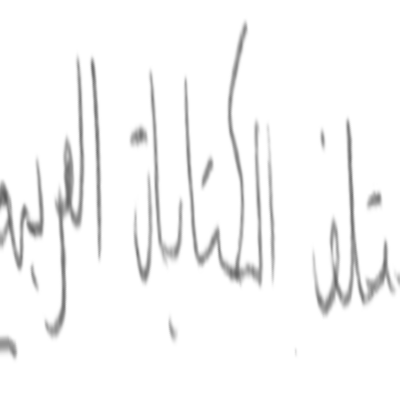 تلف الكتابات العربية